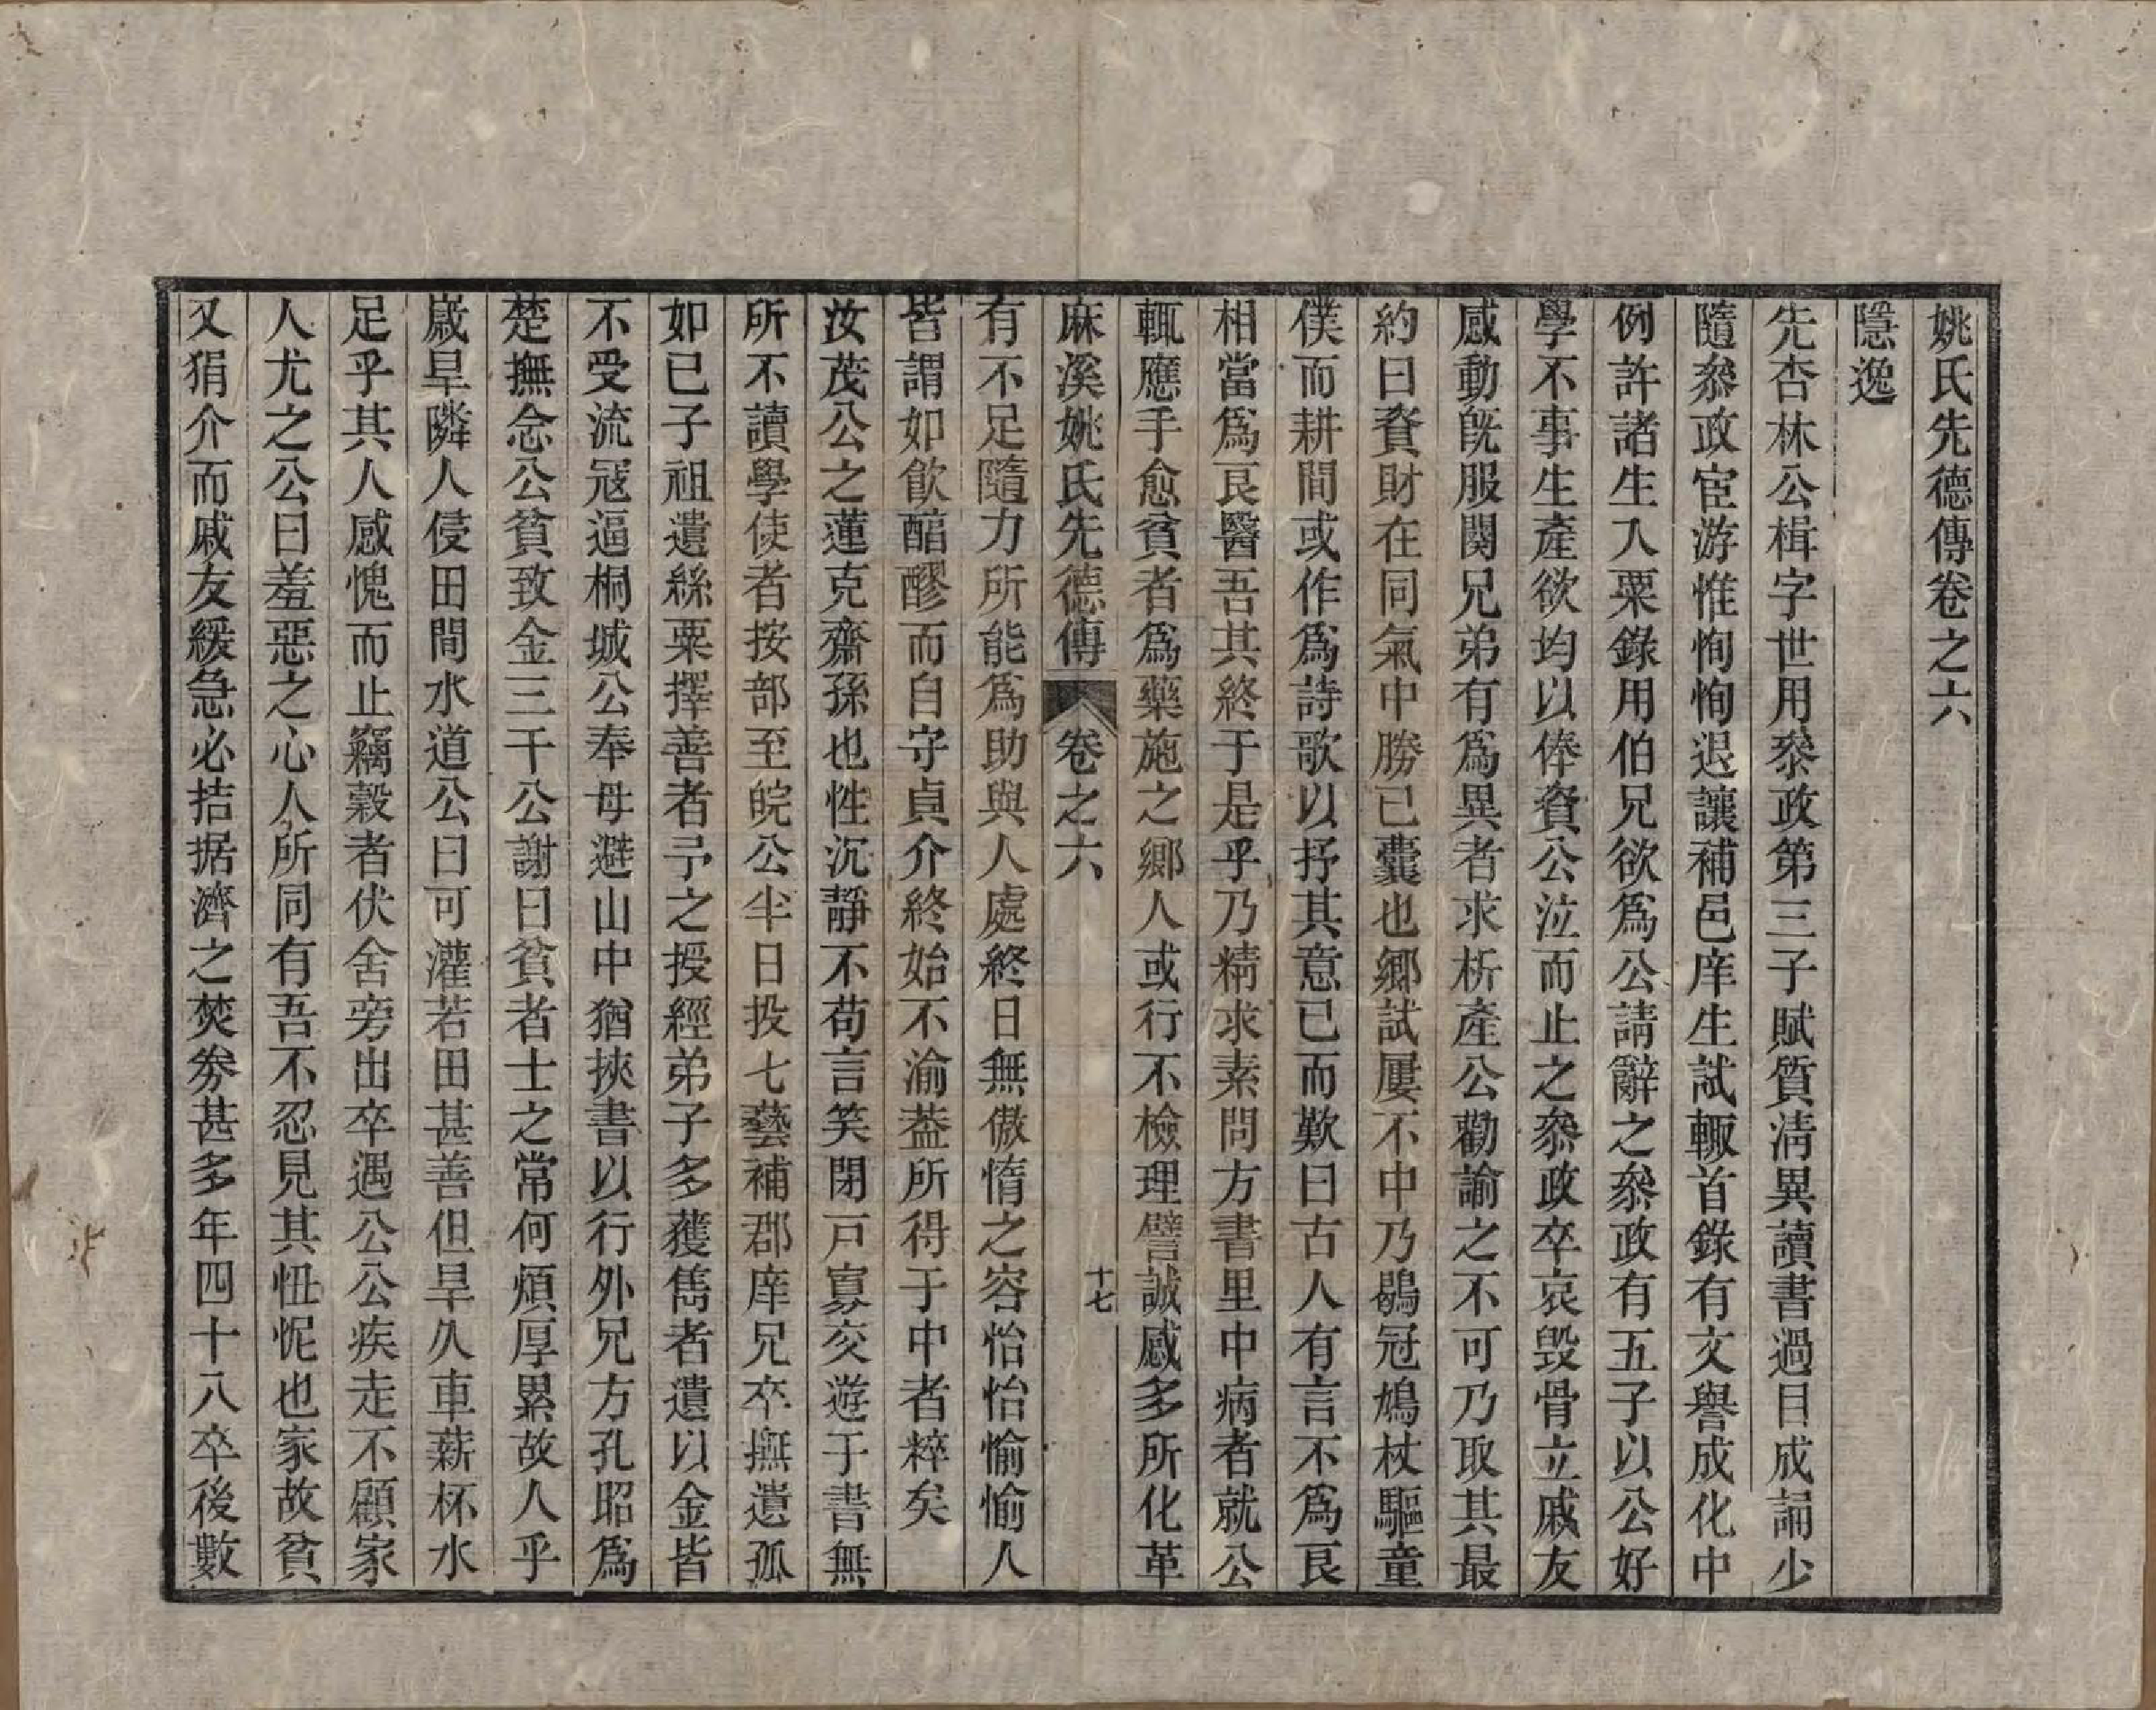 姚氏先德傳卷之六
隱逸
先杏林公楫字世用叅政第三子賦質淸異讀書過目成誦少
隨叅政宦游惟恂恂退讓補邑庠生試輙首錄有文譽成化中
例許諸生入粟錄用伯兄欲爲公請辭之叅政有五子以公好
學不事生產欲均以俸資公泣而止之叅政卒哀毁骨立戚友
感動旣服闋兄弟有爲異者求析產公勸諭之不可乃取其最
約曰貲財在同氣中勝已囊也鄉試屢不中乃鶡冠鳩杖驅童
僕而耕間或作爲詩歌以抒其意已而歎曰古人有言不爲良
相當爲良醫吾其終于是乎乃精求素問方書里中病者就公
輒應手愈貧者爲藥施之鄉人或行不檢理譬誠感多所化革
麻溪姚氏先德傳　卷之六　十七
有不足隨力所能爲助與人處終日無傲惰之容怡怡愉愉人
皆謂如飮醇醪而自守貞介終始不渝葢所得于中者粹矣
汝茂公之蓮克齋孫也性沉靜不苟言笑閉戸寡交遊于書無
所不讀學使者按部至皖公半日投七藝補郡庠兄卒撫遺孤
如已子祖遺絲粟擇善者予之授經弟子多獲雋者遺以金皆
不受流冦逼桐城公奉母避山中猶挾書以行外兄方孔昭爲
楚撫念公貧致金三千公謝曰貧者士之常何煩厚累故人乎
嵗旱隣人侵田間水道公曰可灌若田甚善但旱久車薪杯水
足乎其人感愧而止竊穀者伏舍旁出卒遇公公疾走不顧家
人尤之公曰羞惡之心人所同有吾不忍見其忸怩也家故貧
又狷介而戚友緩急必拮据濟之焚劵甚多年四十八卒後數